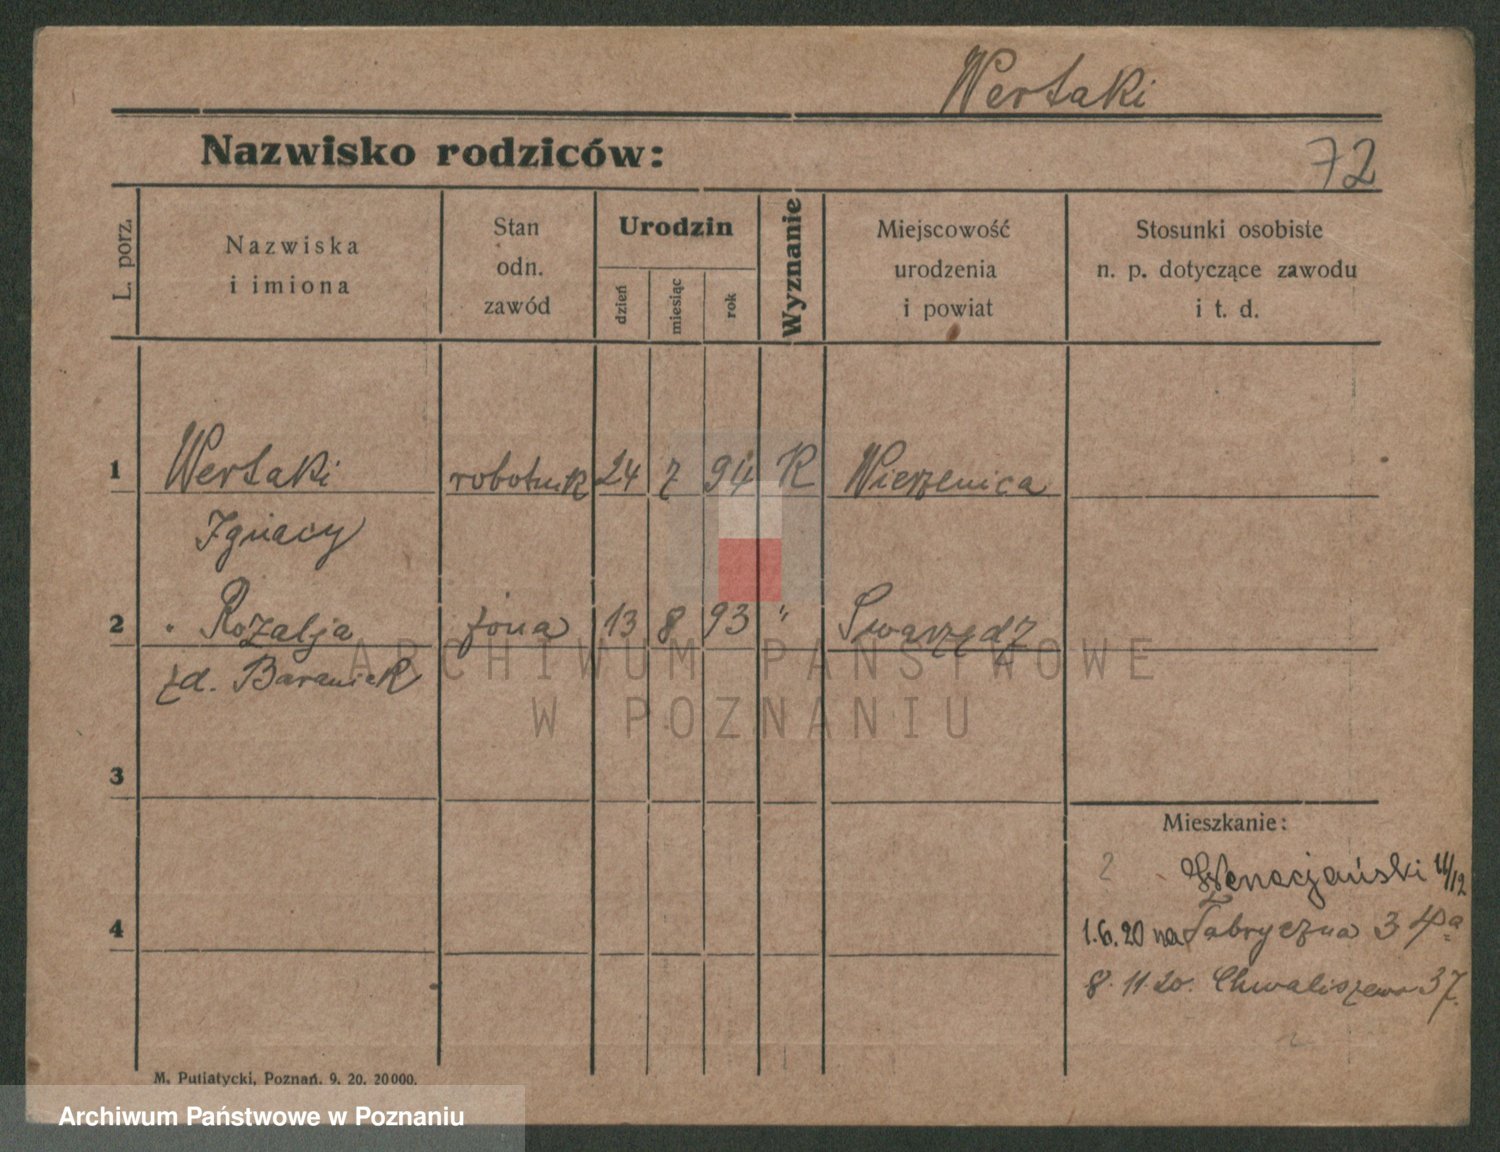 Wertaki
Nazwisko rodziców:
72
L. porz.
Nazwiska
i imiona
Stan
odn.
zawód
Urodzin
dzień
miesiąc
rok
Wyznanie
Miejscowość
urodzenia
i powiat
Stosunki osobiste
n. p. dotyczące zawodu
i t. d.
1 Wertaki robotnik 24 7 94 K Wierzenica
Ignacy
2 Rozalja żona 13 8 93 " Swarzędz
zd. Baraniak
3
4
Mieszkanie:
2 11/12
1.6.20 na Fabryczna 3
8.11.20. Chwaliszewo 37.
M. Putiatycki, Poznań. 9. 20. 20000.
ARCHIWUM PAŃSTWOWE
W POZNANIU
Archiwum Państwowe w Poznaniu